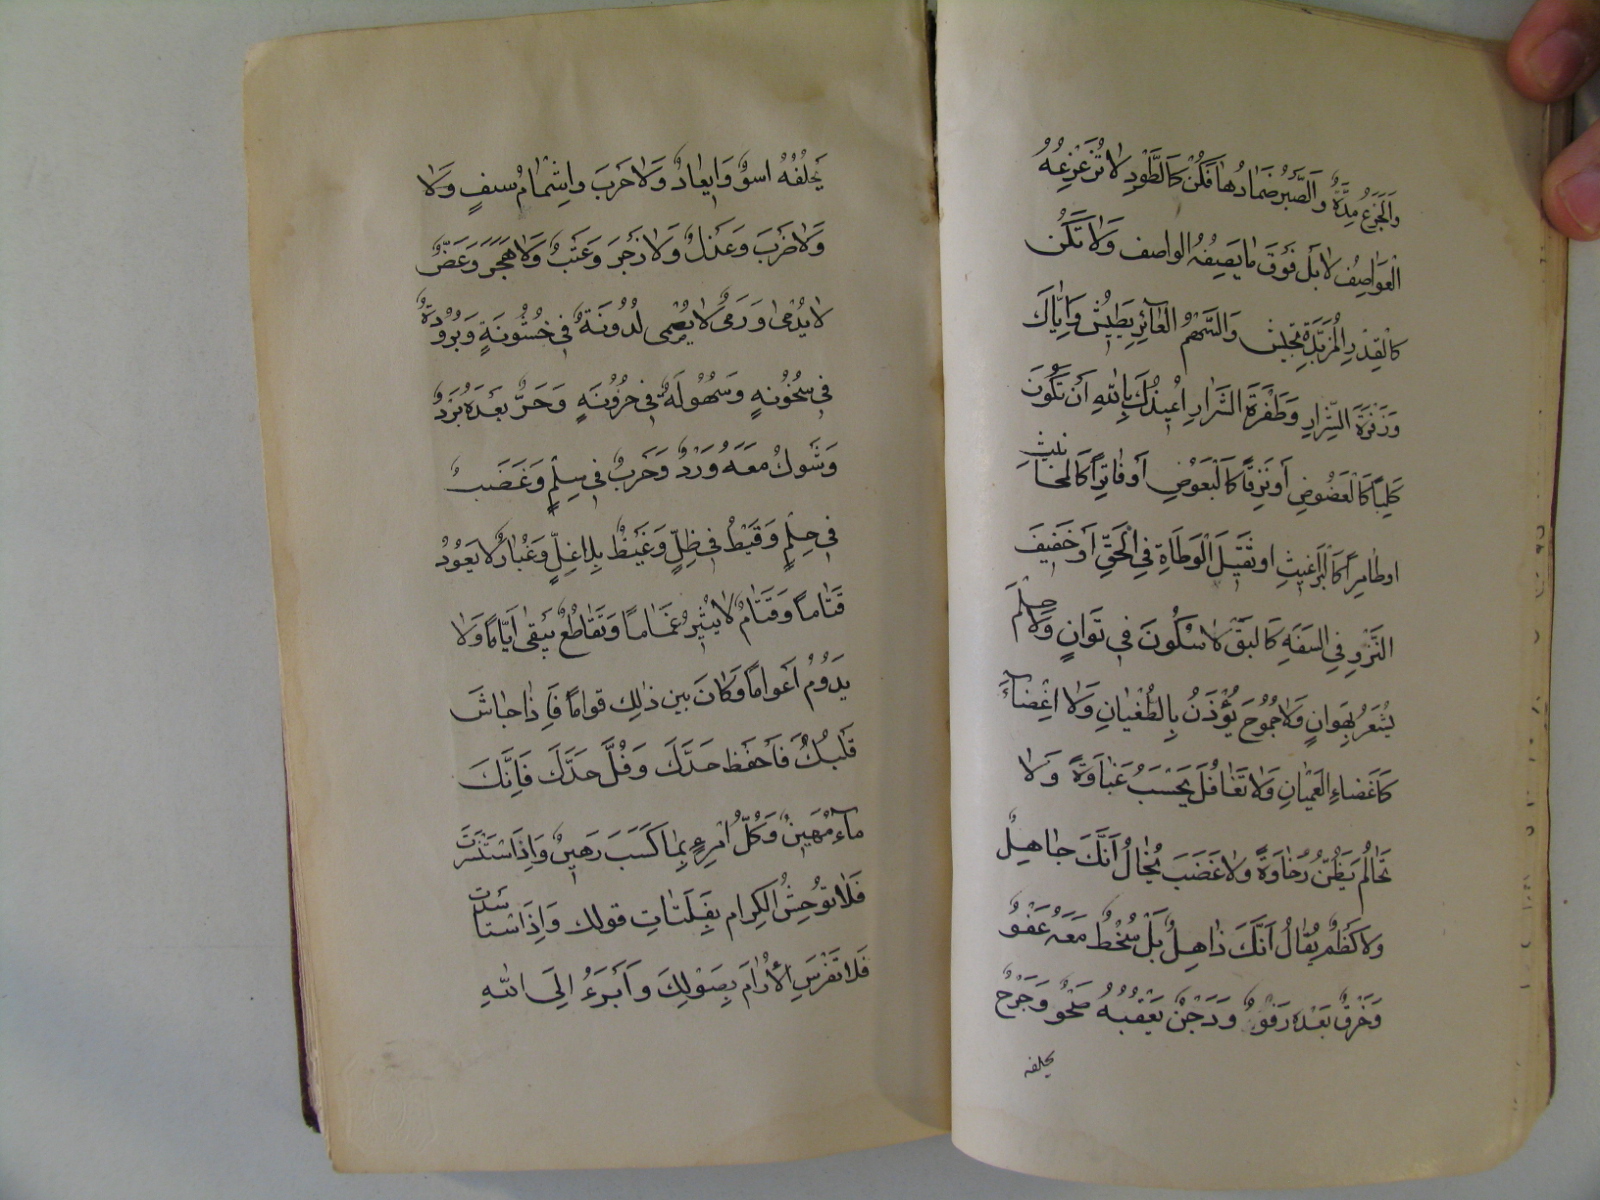 والجزع مدة والصبر ضمادها فكن كالطود لا تزعزعه
العواصف لا بل فوق ما يصفه الواصف ولا تكن
كالقدر المزبدة تجيش والسهم العائر يطيش واياك
وزفرة الشرار وطفرة الشرار اعيذك بالله ان تكون
كلبا كالعضوض او نزقا كالبعوض او فاترا كالمخانيث
او طامرا كالبراغيث او ثقيل الوطاة في الحق او خفيف
النزو في السفه كالبق لا سكون في توان ولا حلم
يشعر بهوان ولا جموح يؤذن بالطغيان ولا اغضاء
كاغضاء العميان ولا تغافل يحسب غباوة ولا
تحالم يظن رخاوة ولا غضب يخال انك جاهل
ولا كظم يقال انك ذاهل بل سخط معه عفو
وخرق بعده رفو ودجن يعقبه صحو وجرح
يخلفه
يخلفه اسو وايعاد ولا حرب واشمام سيف ولا
ولا ضرب وعذل ولا زجر وعتب ولا هجر وعض
لا يدمى ورمى لا يصمى لدونة في خشونة وبرودة
في سخونة وسهولة في حزونة وحر بعده برد
وشوك معه ورد وحرب في سلم وغضب
في حلم وقيظ في ظل وغيظ بلا غل وغبار لا يعود
قتاما وقتام لا يثير غماما وتقاطع يبقى اياما ولا
يدوم اعواما وكان بين ذلك قواما فاذا جاش
قلبك فاحفظ حدك وفل حدك فانك
ماء مهين وكل امرء بما كسب رهين واذا استنسرت
فلا توحش الكرام بفلتات قولك واذا استاسدت
فلا تفرس الارام بصولك وابرء الى الله